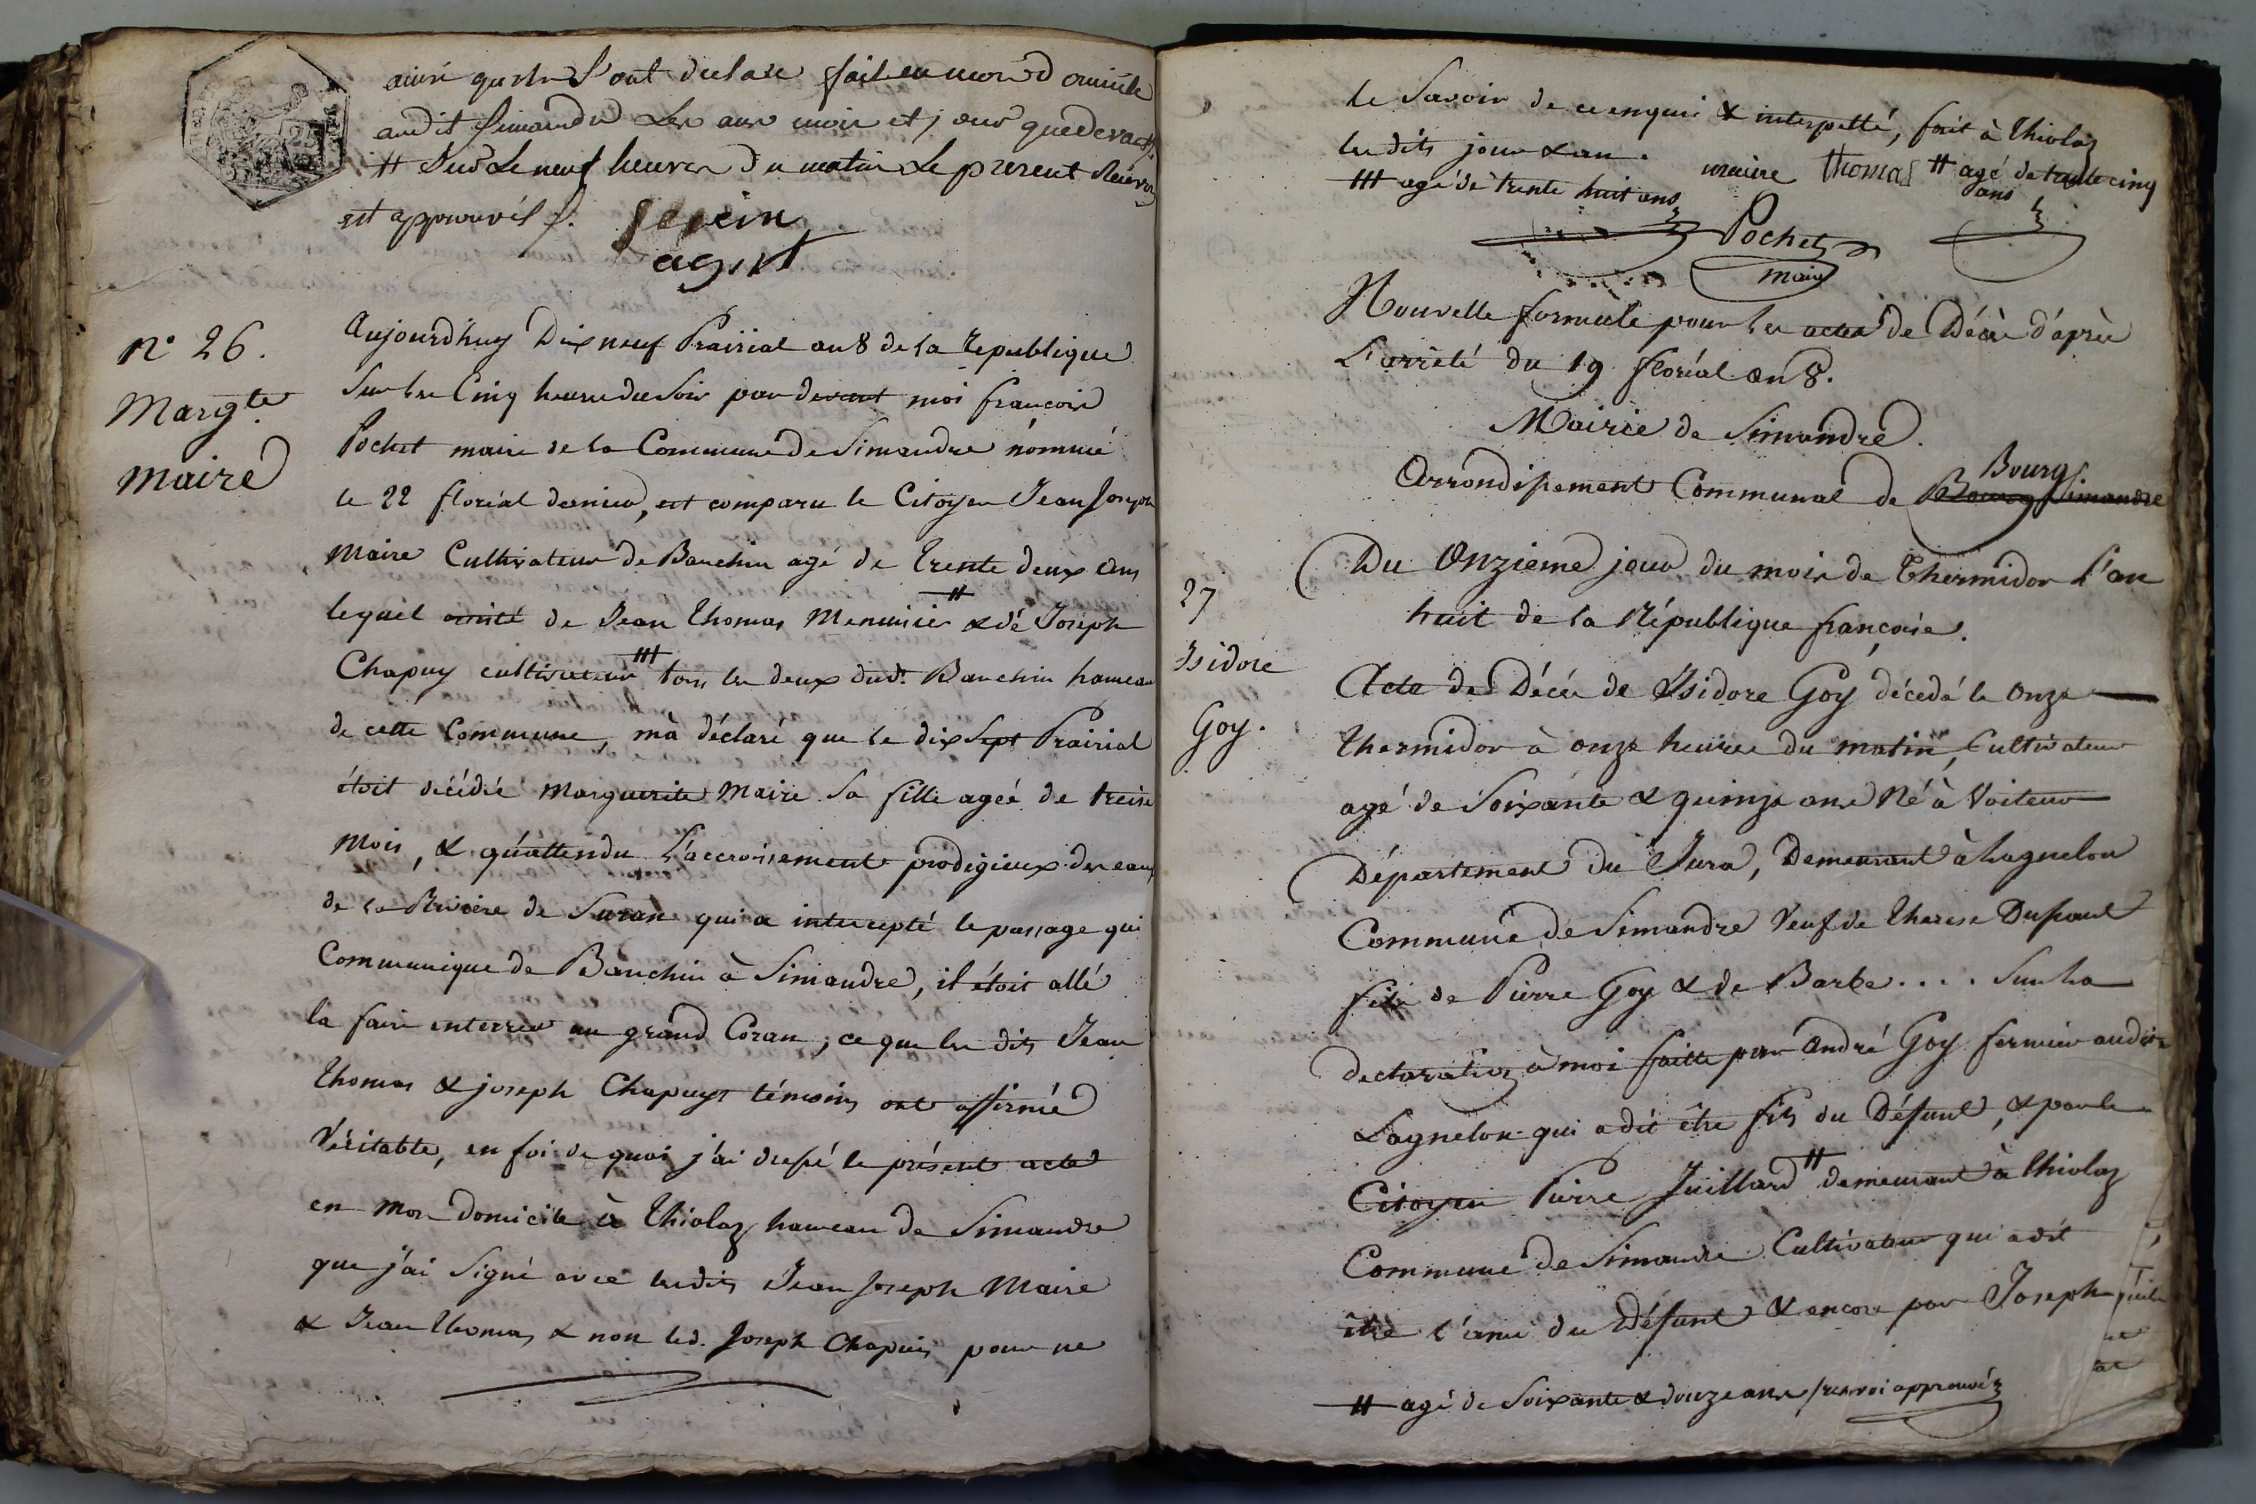 qu'ils l'ont declaré fait en mon domicile
audit Simandre les ans mois et jour que devant.
# Sur le neuf heures du matin le present Renvoy
est approuvés /.
agent
n° 26.
Margte
Maire
Aujourd'huy Dix neuf Prairial an 8 de la Republique
Sur les Cinq heures du Soir par devant moi françois
Pochet maire de la Commune de Simandre nommé
le 22 floréal dernier, est comparu le Citoyen Jean Joseph
Maire Cultivateur de Banchin agé de trente deux ans
lequel assisté de Jean Thomas Menuisier # & de Joseph
Chapuy cultivateur ### tous les deux dud. Banchin hameau
de cette Commune, m'a déclaré que le dix Sept Prairial
étoit décédée Marguerite Maire sa fille agée de treise
Mois, & qu'attendu L'accroisement prodigieux des eaux
de la Riviere de Suran qui a intercepté le passage qui
Communique de Banchin à Simandre, il étoit allé
la faire enterrer au grand Coran ; ce que les dits Jean
Thomas & joseph Chapuys témoins ont affirmé
Véritable, en foi de quoi j'ai dressé le présent acte
en mon domicile à Thiolaz hameau de Simandre
que j'ai Signé avec lesdits Jean Joseph Maire
& Jean Thomas & non led. Joseph Chapuis pour ne
le Savoir de ce enquis & interpellé, fait à Thiolaz
les dits jour & an.
maire Thomas # agé de trente cinq
ans
### agé de trente huit ans
Pochet
maire
Nouvelle formule pour les actes de Décès d'après
L'arrêté du 19 floréal an 8.
Mairie de Simandre.
Arrondissement Communal de Bourg Simandre
Bourg
27
Isidore
Goy.
Du Onzieme jour du mois de Thermidor L'an
huit de la République françoise.
Acte de Décès de Isidore Goy décedé le onze
thermidor à onze heures du matin, Cultivateur
agé de Soixante & quinze ans Né à Voiteur
Département du Jura, Demeurant à Lagnelou
Commune de Simandre Veuf de Therese Dupont
fils de Pierre Goy & de Barbe . . . . Sur la
declaration à moi faitte par André Goy fermier audit
Lagnelou qui a dit être fils du Défunt, & par le
Citoyen Pierre Juillard # demeurant à Thiolaz
Commune de Simandre Cultivateur qui a dit
être l'ami du Défunt & encore par Joseph
# agé de Soixante & douze ans / renvoi approuvé